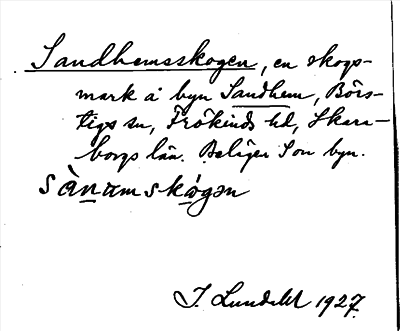 Sandhemsskogen, en skogs-
mark å byn Sandhem, Börs-
tigs sn, Frökinds hd, Skara-
borgs län. Belägen S om byn.
sànamskógən
J. Lundahl 1927.